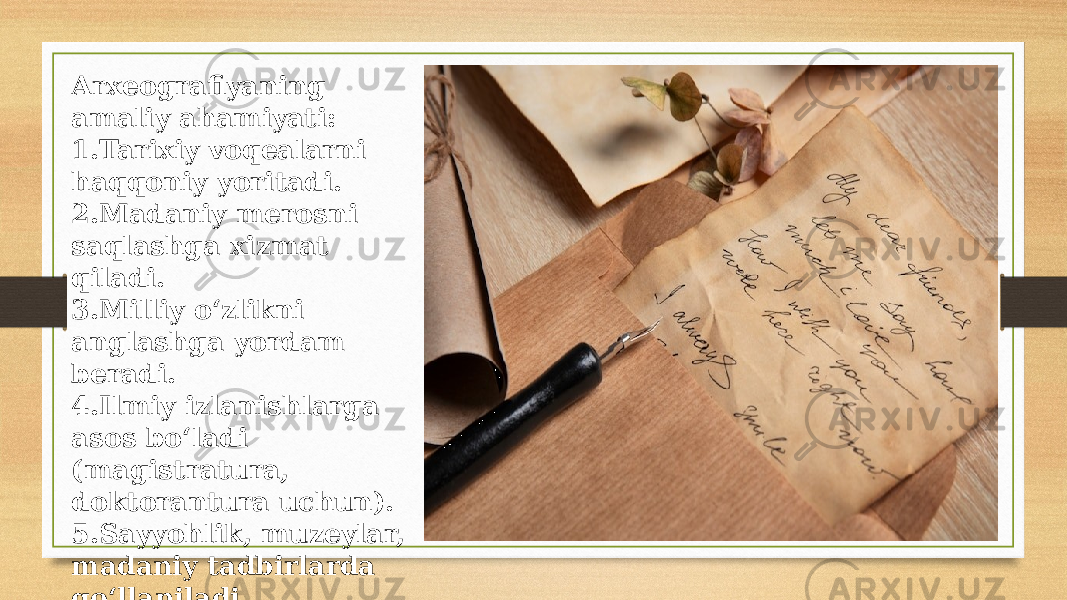 Arxeografiyaning
amaliy ahamiyati:
1.Tarixiy voqealarni
haqqoniy yoritadi.
2.Madaniy merosni
saqlashga xizmat
qiladi.
3.Milliy o‘zlikni
anglashga yordam
beradi.
4.Ilmiy izlanishlarga
asos bo‘ladi
(magistratura,
doktorantura uchun).
5.Sayyohlik, muzeylar,
madaniy tadbirlarda
qo‘llaniladi
My dear friends,
let me say how
much I love you
how I wish you
were here right now
I always
smile
ARXIV.UZ
ARXIV.UZ
ARXIV.UZ
ARXIV.UZ
ARXIV.UZ
ARXIV.UZ
ARXIV.UZ
ARXIV.UZ